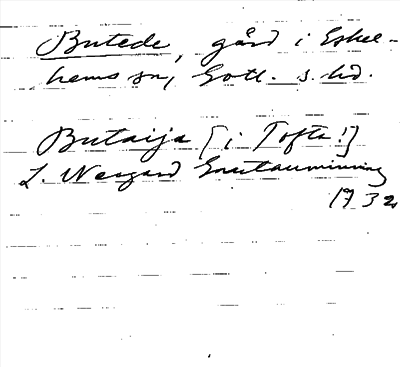 Butede, gård i Eskel-
hems sn, Gotl. s. hd.
Butaija [i Tofta!]
L. Nergård Gnutauminning
1732